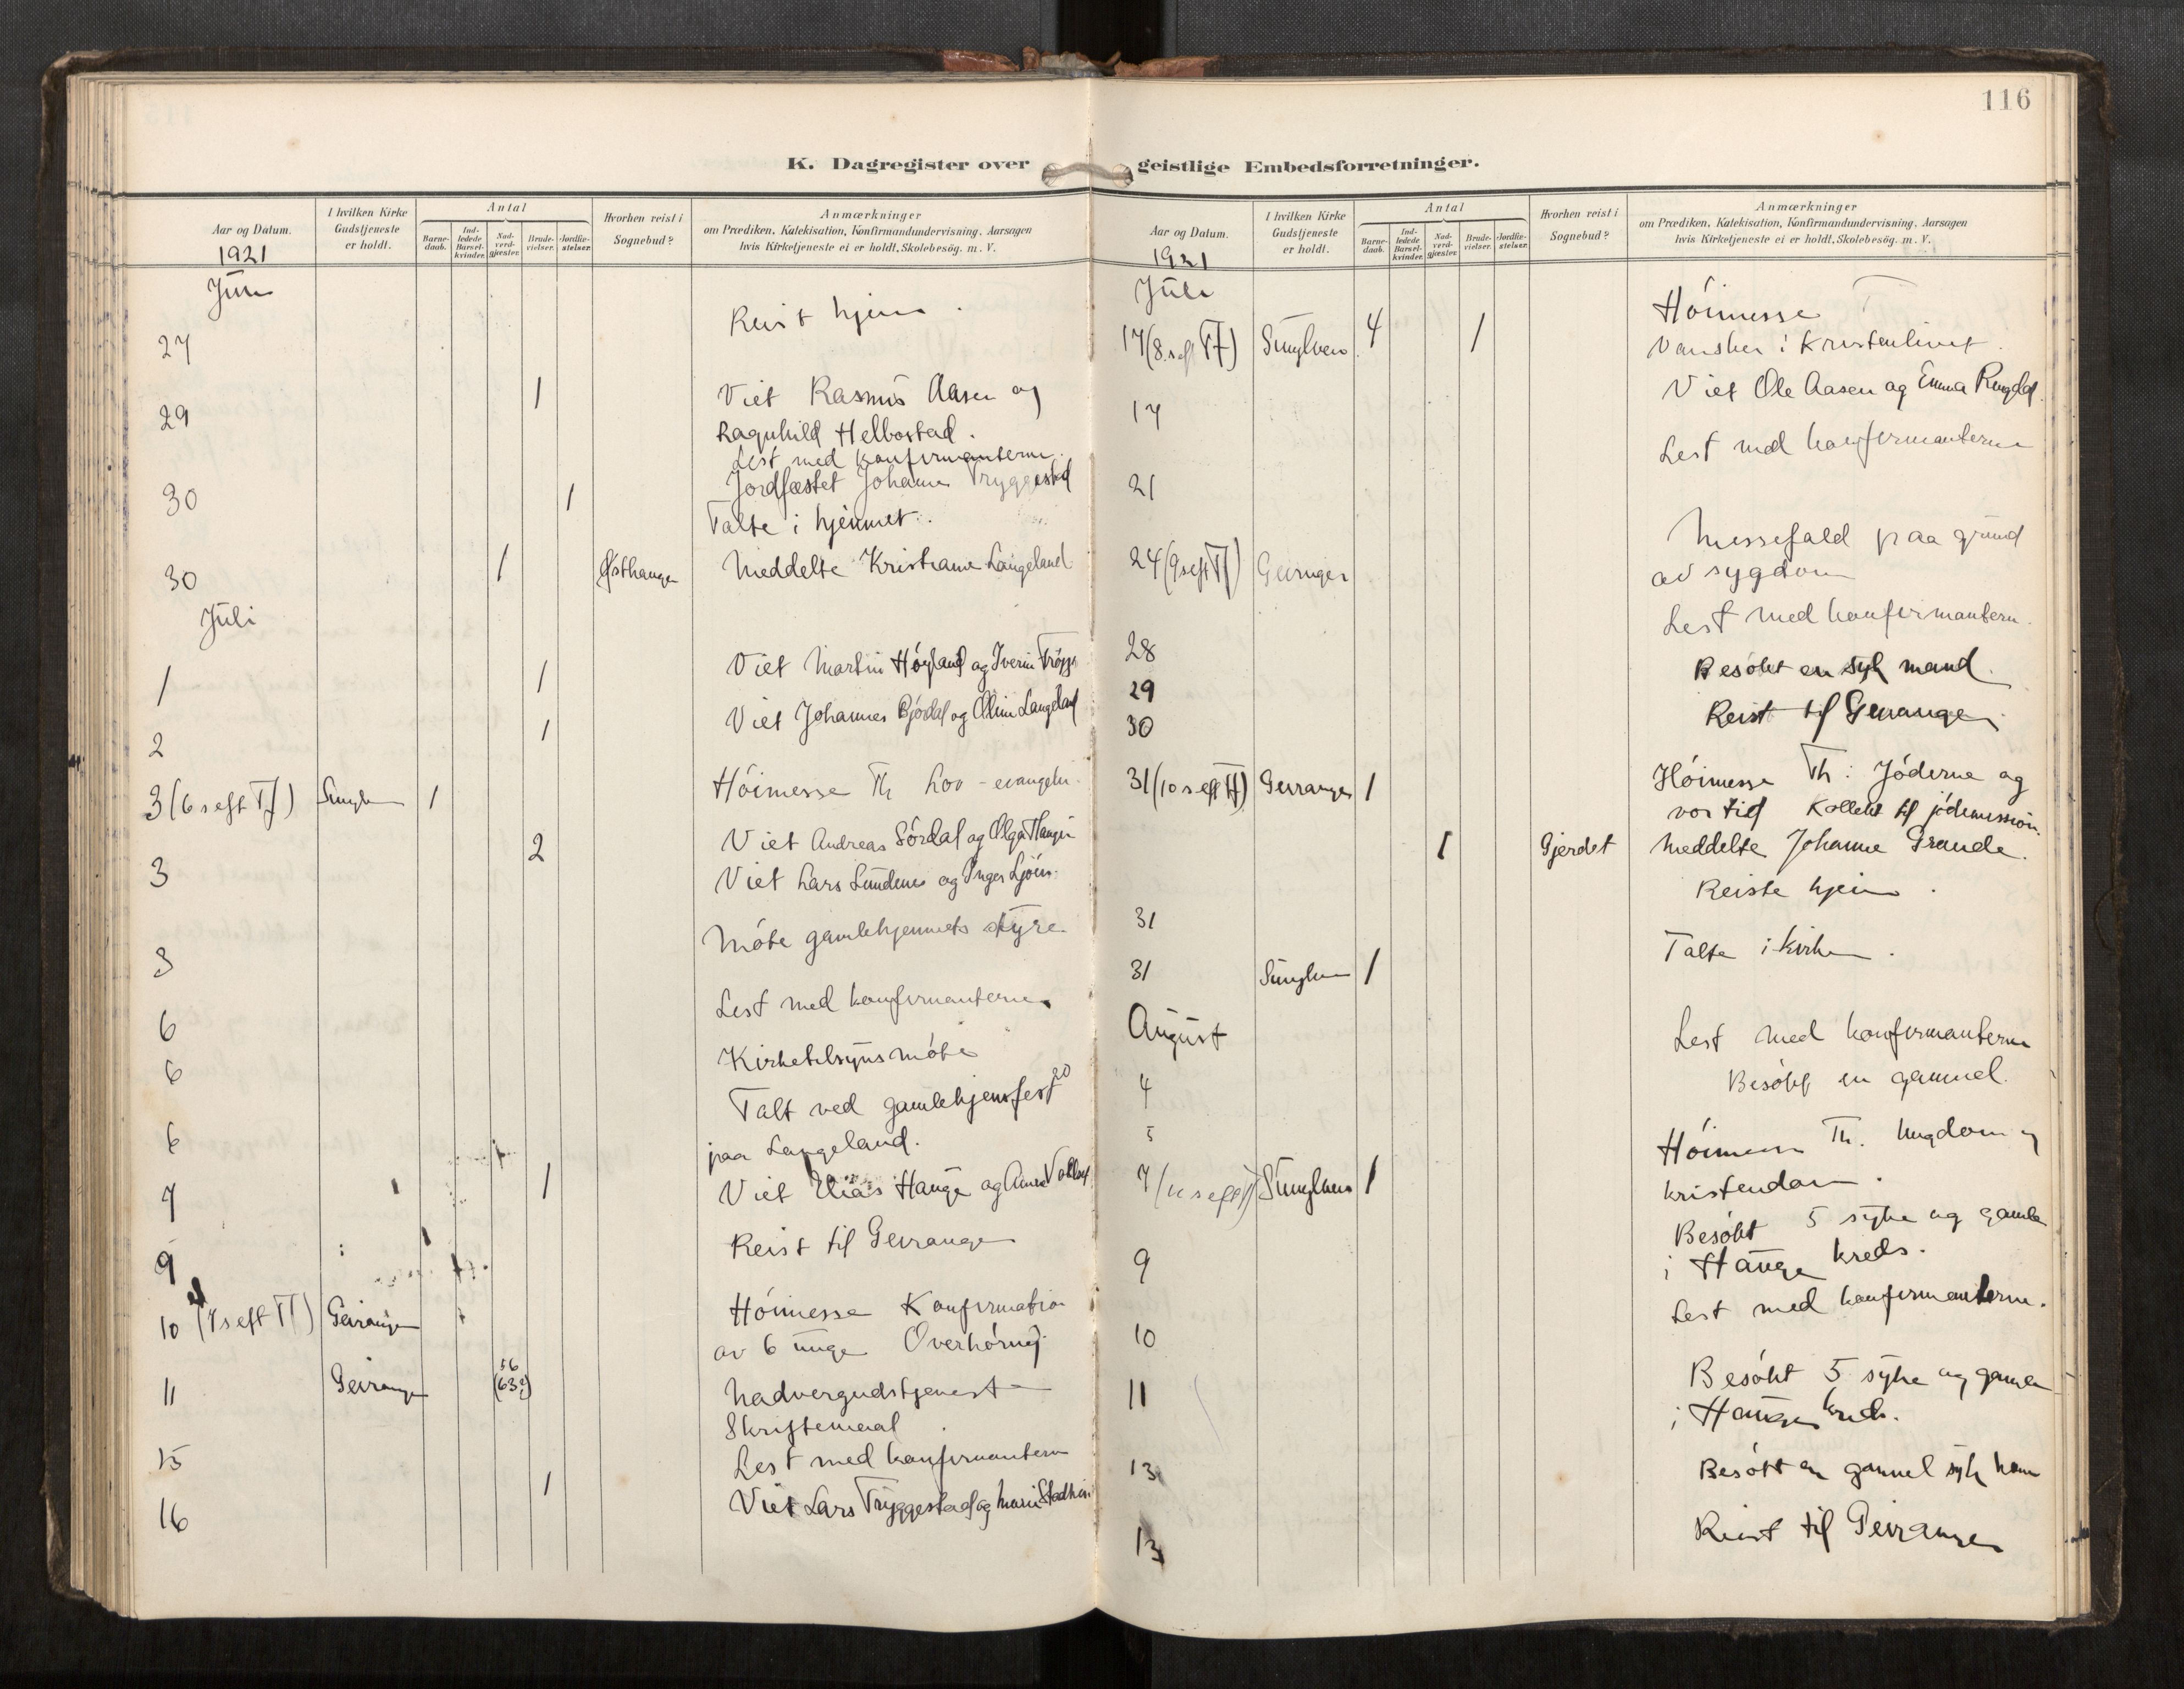 116
K. Dagregister over geistlige Embedsforretninger.
Aar og Datum. I hvilken Kirke Gudstjeneste er holdt. Antal Barnedaab. Indledede Barselkvinder. Nadverdgjæster. Brudevielser. Jordfæstelser. Hvorhen reist i Sognebud? Anmærkninger om Prædiken, Katekisation, Konfirmandundervisning, Aarsagen hvis Kirketjeneste ei er holdt, Skolebesøg. m. V.
1921
Juni
27 Reist hjem.
29 1 Viet Rasmus Aasen og
Ragnhild Hellostad.
Lest med konfirmanterne.
30 1 Jordfæstet Johanne Tryggestad
Talte i hjemmet.
30 1 Østhauge Meddelte Kristiane Langeland
Juli
1 1 Viet Martin Høyland og Iverine
2 1 Viet Johannes Bjørdal og Oline Langeland
3 (6 s eft Tf) Sunylv 1 Høimesse Th Lov - evangeli
3 2 Viet Andreas Sørdal og Olga Haugen
Viet Lars og Inger Ljøen
3 Møte gamlehjemmets styre
6 Lest med konfirmanterne
6 Kirketilsynsmøte
6 Talt ved gamlehjemsfest
paa Langeland.
7 1 Viet Elias Hauge og Anne
9 Reist til Geiranger
10 (7 s eft Tf) Geiranger Høimesse Konfirmation
av 6 unge Overhøring
11 Geiranger 56 (63?) Nadvergudstjenest
Skriftemaal
15 Lest med konfirmantern
16 1 Viet Lars Tryggestad og Marie Stadheim
Aar og Datum. I hvilken Kirke Gudstjeneste er holdt. Antal Barnedaab. Indledede Barselkvinder. Nadverdgjæster. Brudevielser. Jordfæstelser. Hvorhen reist i Sognebud? Anmærkninger om Prædiken, Katekisation, Konfirmandundervisning, Aarsagen hvis Kirketjeneste ei er holdt, Skolebesøg. m. V.
1921
Juli
17 (8. s eft Tf) Sunylven 4 1 Høimesse
Vansker i Kristenlivet.
17 Viet Ole Aasen og Emma Ringdal.
21 Lest med konfirmanterne
24 (9 s eft Tf) Geiranger Messefald paa grund
av sygdom
28 Lest med konfirmantern.
29 Besøkt en syk mand.
30 Reist til Geiranger
31 (10 s eft Tf) Geiranger 1 Høimesse Th: Jøderne og
vor tid Kollekt til jødemission.
1 Gjerdet Meddelte Johanne Grande.
31 Reiste hjem.
31 Sunylven 1 Talte i kirken.
August
4 Lest med konfirmanterne
5 Besøkt en gammel.
7 (11 s eft Tf) Sunylven 1 Høimesse Th. Ungdom og
kristendom.
9 Besøkt 5 syke og gamle
i Hauge kreds.
10 Lest med konfirmanterne.
11 Besøkt 5 syke og gamle
i Hauge kreds.
13 Besøkt en gammel syk kone
13 Reist til Geiranger